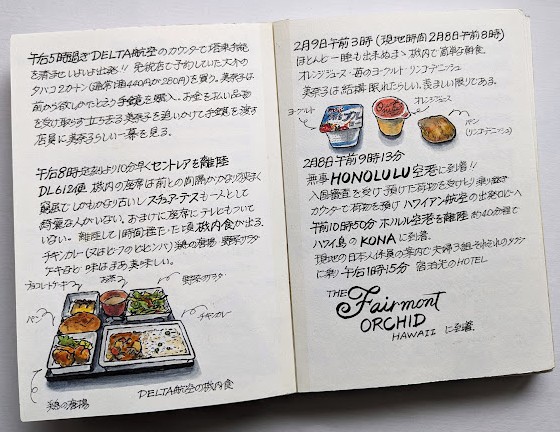 午后5時過ぎ DELTA航空のカウンターで搭乗手続
を済ませいよいよ出発!! 免税店で予約していた大木の
タバコ2カートン(通常1箱440円が280円)を買う。美奈子は
前から欲しかったという手鏡を購入。お金を払い品物
を受け取らず立ち去る美奈子を追いかけて手鏡を渡す
店員に美奈子らしい一幕を見る。
午后8時定刻より10分早くセントレアを離陸
DL612便 機内の座席は前との間隔がかなり狭く
窮屈でしかもかなり古い スチュアーデスも一人として
綺麗な人がいない。おまけに座席にテレビもついて
いない。離陸して1時間程たった頃 機内食が出る。
チキンカレー(又はビーフのどちらか) 鶏の唐揚 野菜サラダ
ケーキなど 味はまあ美味しい。
チョコレートケーキ お茶 野菜サラダ
パン チキンカレー
鶏の唐揚 DELTA航空の機内食
2月9日午前3時 (現地時間 2月8日午前8時)
ほとんど一睡も出来ぬまま 機内で簡単な朝食。
オレンジジュース・苺のヨーグルト・リンゴデニッシュ
美奈子は結構眠れたらしい。羨ましい限りである。
ヨーグルト オレンジジュース
パン
(リンゴデニッシュ)
2月8日 午前9時13分
無事 HONOLULU空港に到着!!
入国審査を受け、預けた荷物を受けとり乗り継ぎ
カウンターで荷物を預け ハワイアン航空の出発ロビーへ
午前10時50分 ホノルル空港を離陸 約40分程で
ハワイ島の KONA に到着。
現地の日本人係員の案内で夫婦3組をのせたタクシー
に乗り 午后1時15分 宿泊先のHOTEL
THE Fairmont
ORCHID
HAWAII に到着。